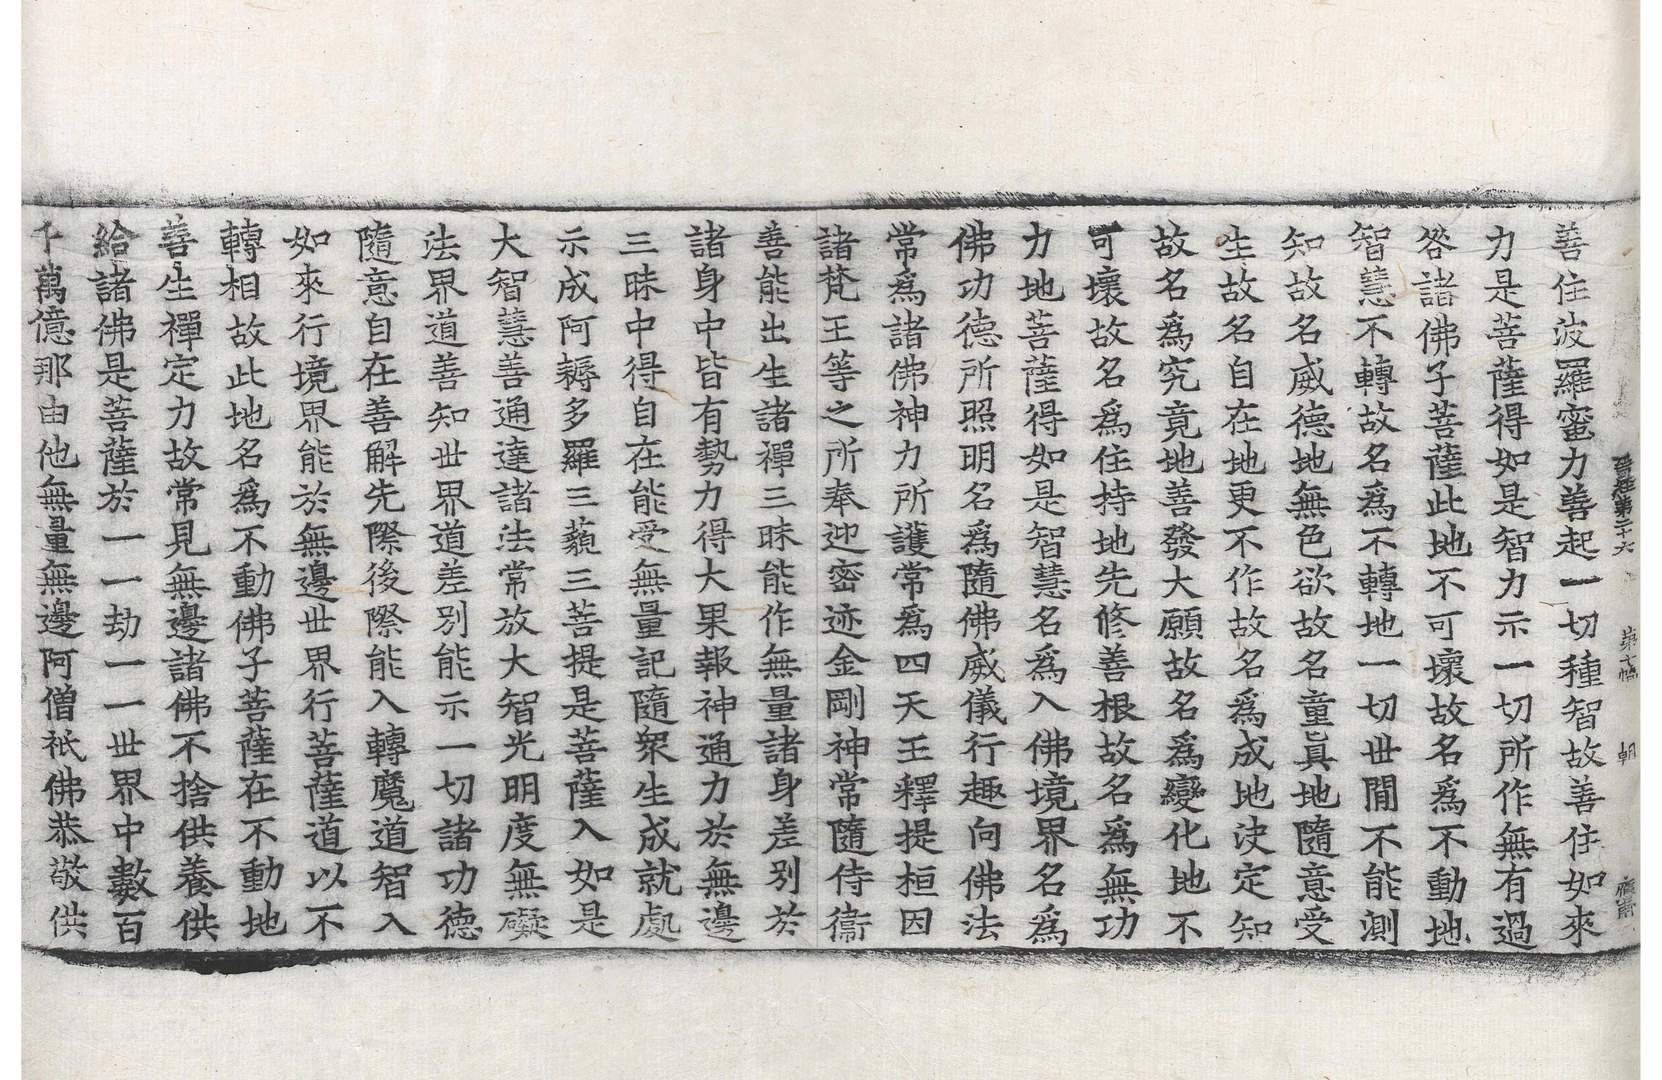 晉經第二十六 第十幅 朝
善住波羅蜜力善起一切種智故善住如來
力是菩薩得如是智力示一切所作無有過
咎諸佛子菩薩此地不可壞故名爲不動地
智慧不轉故名爲不轉地一切世閒不能測
知故名威德地無色欲故名童眞地隨意受
生故名自在地更不作故名爲成地決定知
故名爲究竟地善發大願故名爲變化地不
可壞故名爲住持地先修善根故名爲無功
力地菩薩得如是智慧名爲入佛境界名爲
佛功德所照明名爲隨佛威儀行趣向佛法
常爲諸佛神力所護常爲四天王釋提桓因
諸梵王等之所奉迎密迹金剛神常隨侍衞
善能出生諸禪三昧能作無量諸身差別於
諸身中皆有勢力得大果報神通力於無邊
三昧中得自在能受無量記隨衆生成就處
示成阿耨多羅三藐三菩提是菩薩入如是
大智慧善通達諸法常放大智光明度無礙
法界道善知世界道差別能示一切諸功德
隨意自在善解先際後際能入轉魔道智入
如來行境界能於無邊世界行菩薩道以不
轉相故此地名爲不動佛子菩薩在不動地
善生禪定力故常見無邊諸佛不捨供養供
給諸佛是菩薩於一一劫一一世界中數百
千萬億那由他無量無邊阿僧祇佛恭敬供